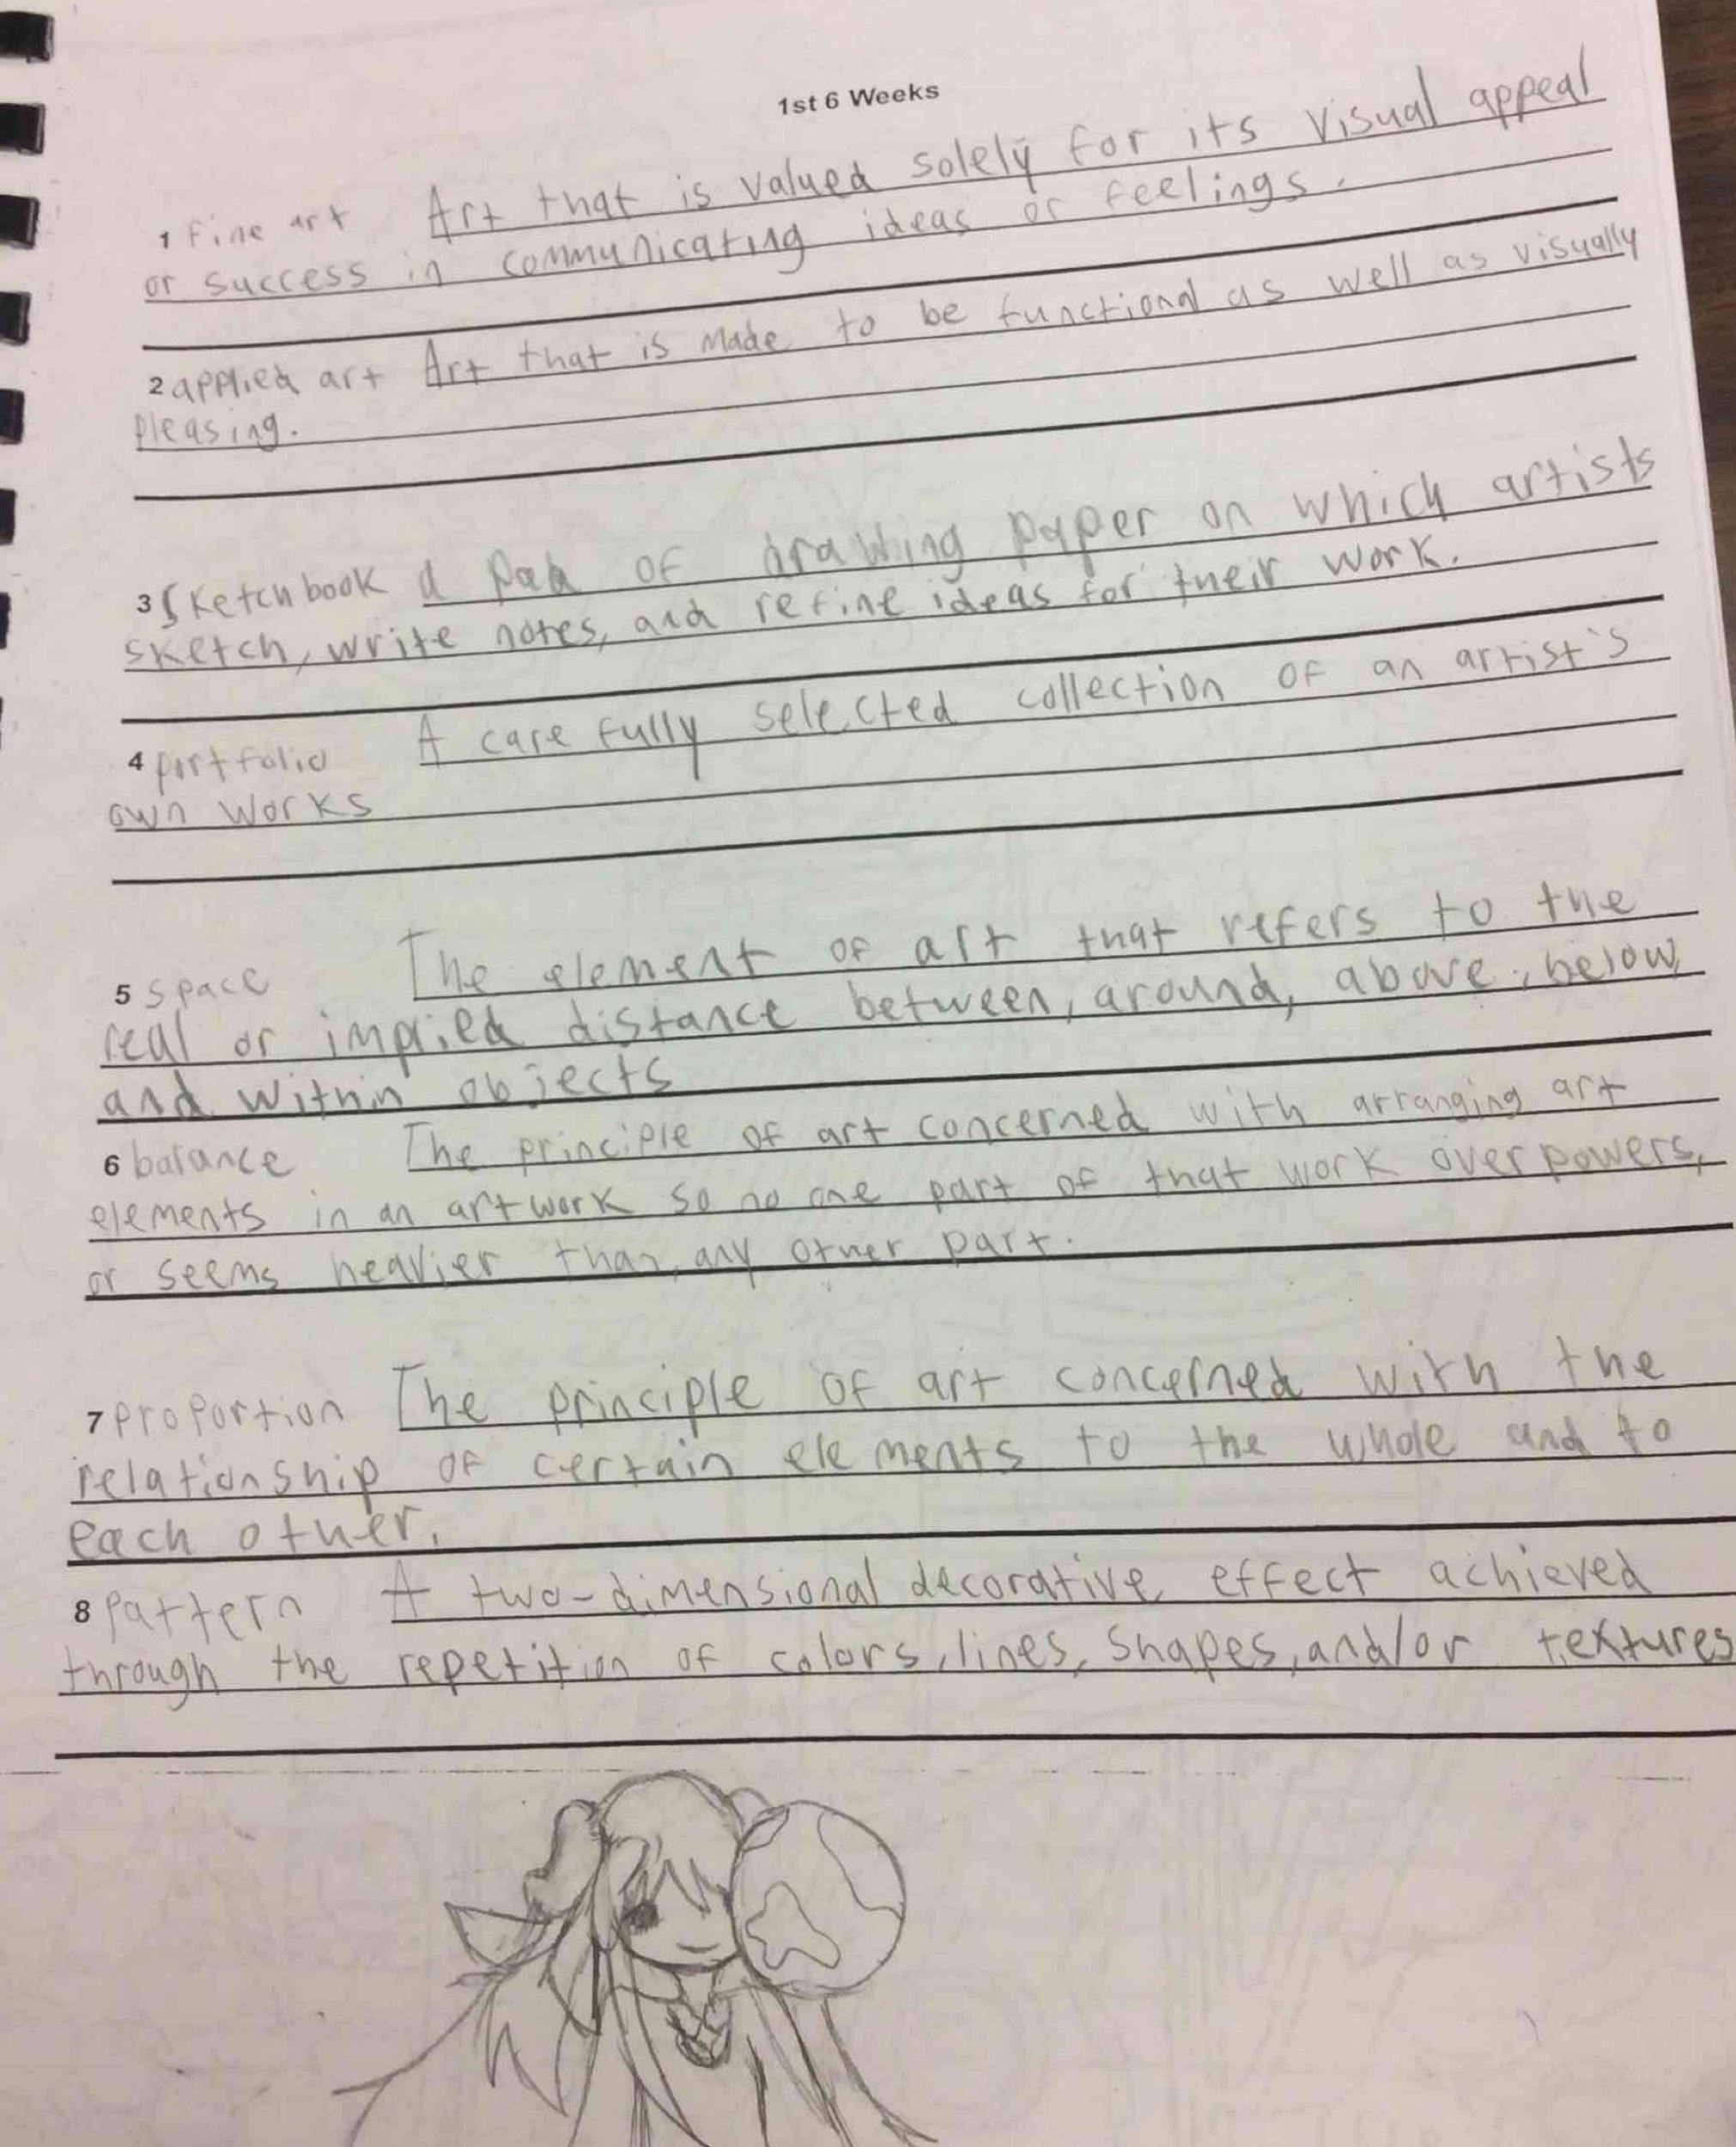 1st 6 Weeks
1 fine art Art that is valued solely for its visual appeal
or success in communicating ideas or feelings.
2 applied art Art that is made to be functional as well as visually
pleasing.
3 Sketchbook A pad of drawing paper on which artists
sketch, write notes, and refine ideas for their work.
4 portfolio A carefully selected collection of an artist's
own works
5 space The element of art that refers to the
real or implied distance between, around, above, below,
and within objects
6 balance The principle of art concerned with arranging art
elements in an artwork so no one part of that work overpowers,
or seems heavier than, any other part.
7 proportion The principle of art concerned with the
relationship of certain elements to the whole and to
each other.
8 pattern A two-dimensional decorative effect achieved
through the repetition of colors, lines, shapes, and/or textures